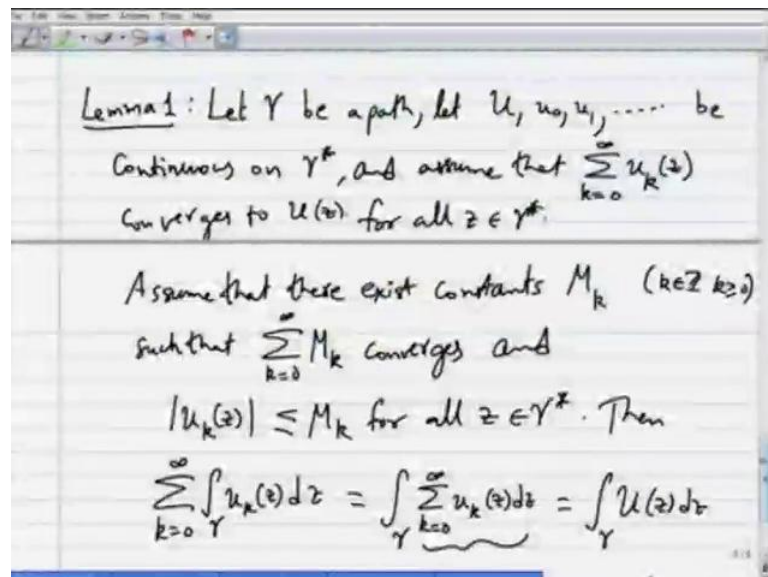 Lemma 1 : Let γ be a path, let U, u₀, u₁, ...... be
Continuous on γ*, and assume that ∑_{k=0}^{∞} u_k(z)
Converges to U(z) for all z ∈ γ*.
Assume that there exist constants M_k (k∈ℤ k≥0)
such that ∑_{k=0}^{∞} M_k converges and
|u_k(z)| ≤ M_k for all z ∈ γ*. Then
∑_{k=0}^{∞} ∫_γ u_k(z) dz = ∫_γ ∑_{k=0}^{∞} u_k(z) dz = ∫_γ U(z) dz